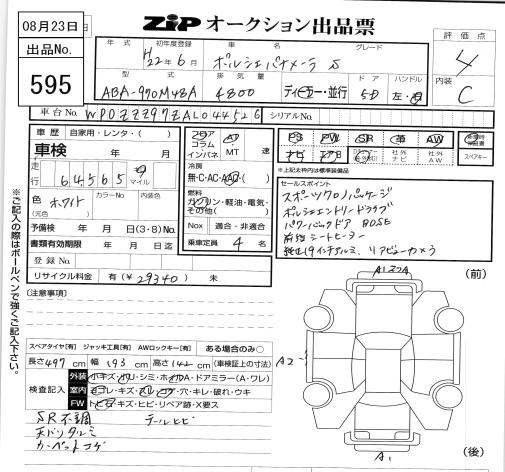 08月23日
出品No.
595
ZIP オークション出品票
評価点
4
内装
C
年式 初年度登録 車名 グレード
H22年6月 ポルシェパナメーラ S
型式 排気量 ドア ハンドル
ABA-970M48A 4800 ディーラー・並行 5D 左・右
車台No. WP0ZZZ97ZAL044526 シリアルNo.
車歴 自家用・レンタ・( )
車検 年 月
走行 64565 キロ マイル
色 ホワイト カラーNo 内装色
(元色)
予備検 年 月 日(3・8)Mo.
書類有効期限 年 月 日迄
登録No.
リサイクル料金 有(¥29340) 未
フロア コラム インパネ AT MT 速
冷房
無・C・AC・AAC・( )
燃料
ガソリン・軽油・電気・その他( )
Nox 適合・非適合
乗車定員 4 名
PS PW SR 革 AW
ナビ 社外ナビ 社外AW
スペアキー
*上記太枠内は標準装備品
セールスポイント
スポーツクロノパッケージ
ポルシェエントリードライブ
パワーバックドア BOSE
前後シートヒーター
純正19インチアルミ、リアビューカメラ
※ご記入の際はボールペンで強くご記入下さい。
(注意事項)
(前)
A2
A1
(後)
スペアタイヤ[有] ジャッキ工具[有] AWロックキー[有] ある場合のみ○
長さ497cm 幅193cm 高さ142cm (車検証上の寸法)
検査記入
外装 小キズ・ハリ・シミ・ホイルA・ドアミラー(A・ワレ)
室内 ヨゴレ・キズ・スレ・コゲ・穴・キレ・破れ・ウキ
FW トビ石・キズ・ヒビ・リペア跡・X要ス
SR不調 テールヒビ
天バリタルミ
カーペットコゲ